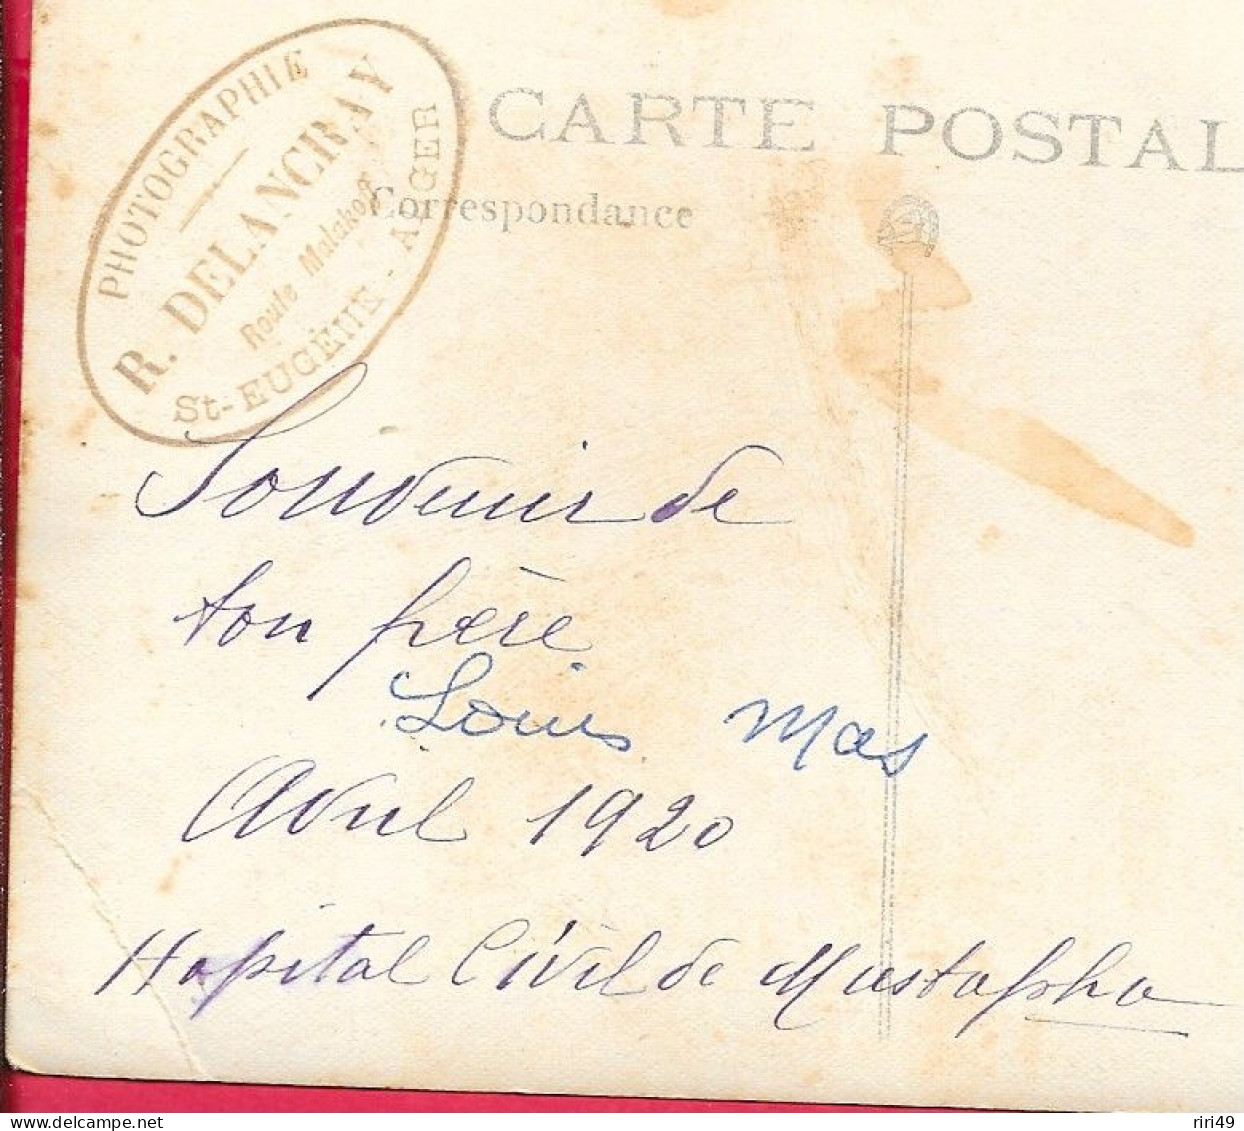 PHOTOGRAPHIE
R. DELANCRAY
Route Malakoff
St-EUGÈNE - ALGER
CARTE POSTAL
Correspondance
Souvenir de
ton père
Louis Mas
Avril 1920
Hopital Civil de Mustapha
riri49